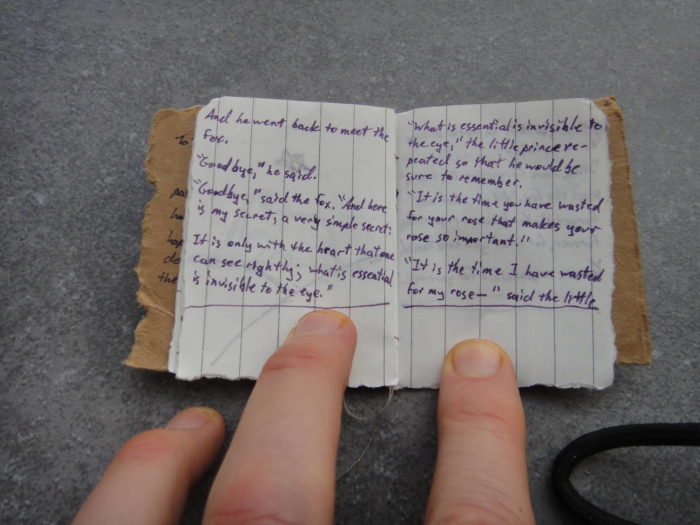 And he went back to meet the
fox.
"Goodbye," he said.
"Goodbye," said the fox. "And here
is my secret, a very simple secret:
It is only with the heart that one
can see rightly; what is essential
is invisible to the eye."
"What is essential is invisible to
the eye," the little prince re-
peated so that he would be
sure to remember.
"It is the time you have wasted
for your rose that makes your
rose so important."
"It is the time I have wasted
for my rose—" said the little
To
the